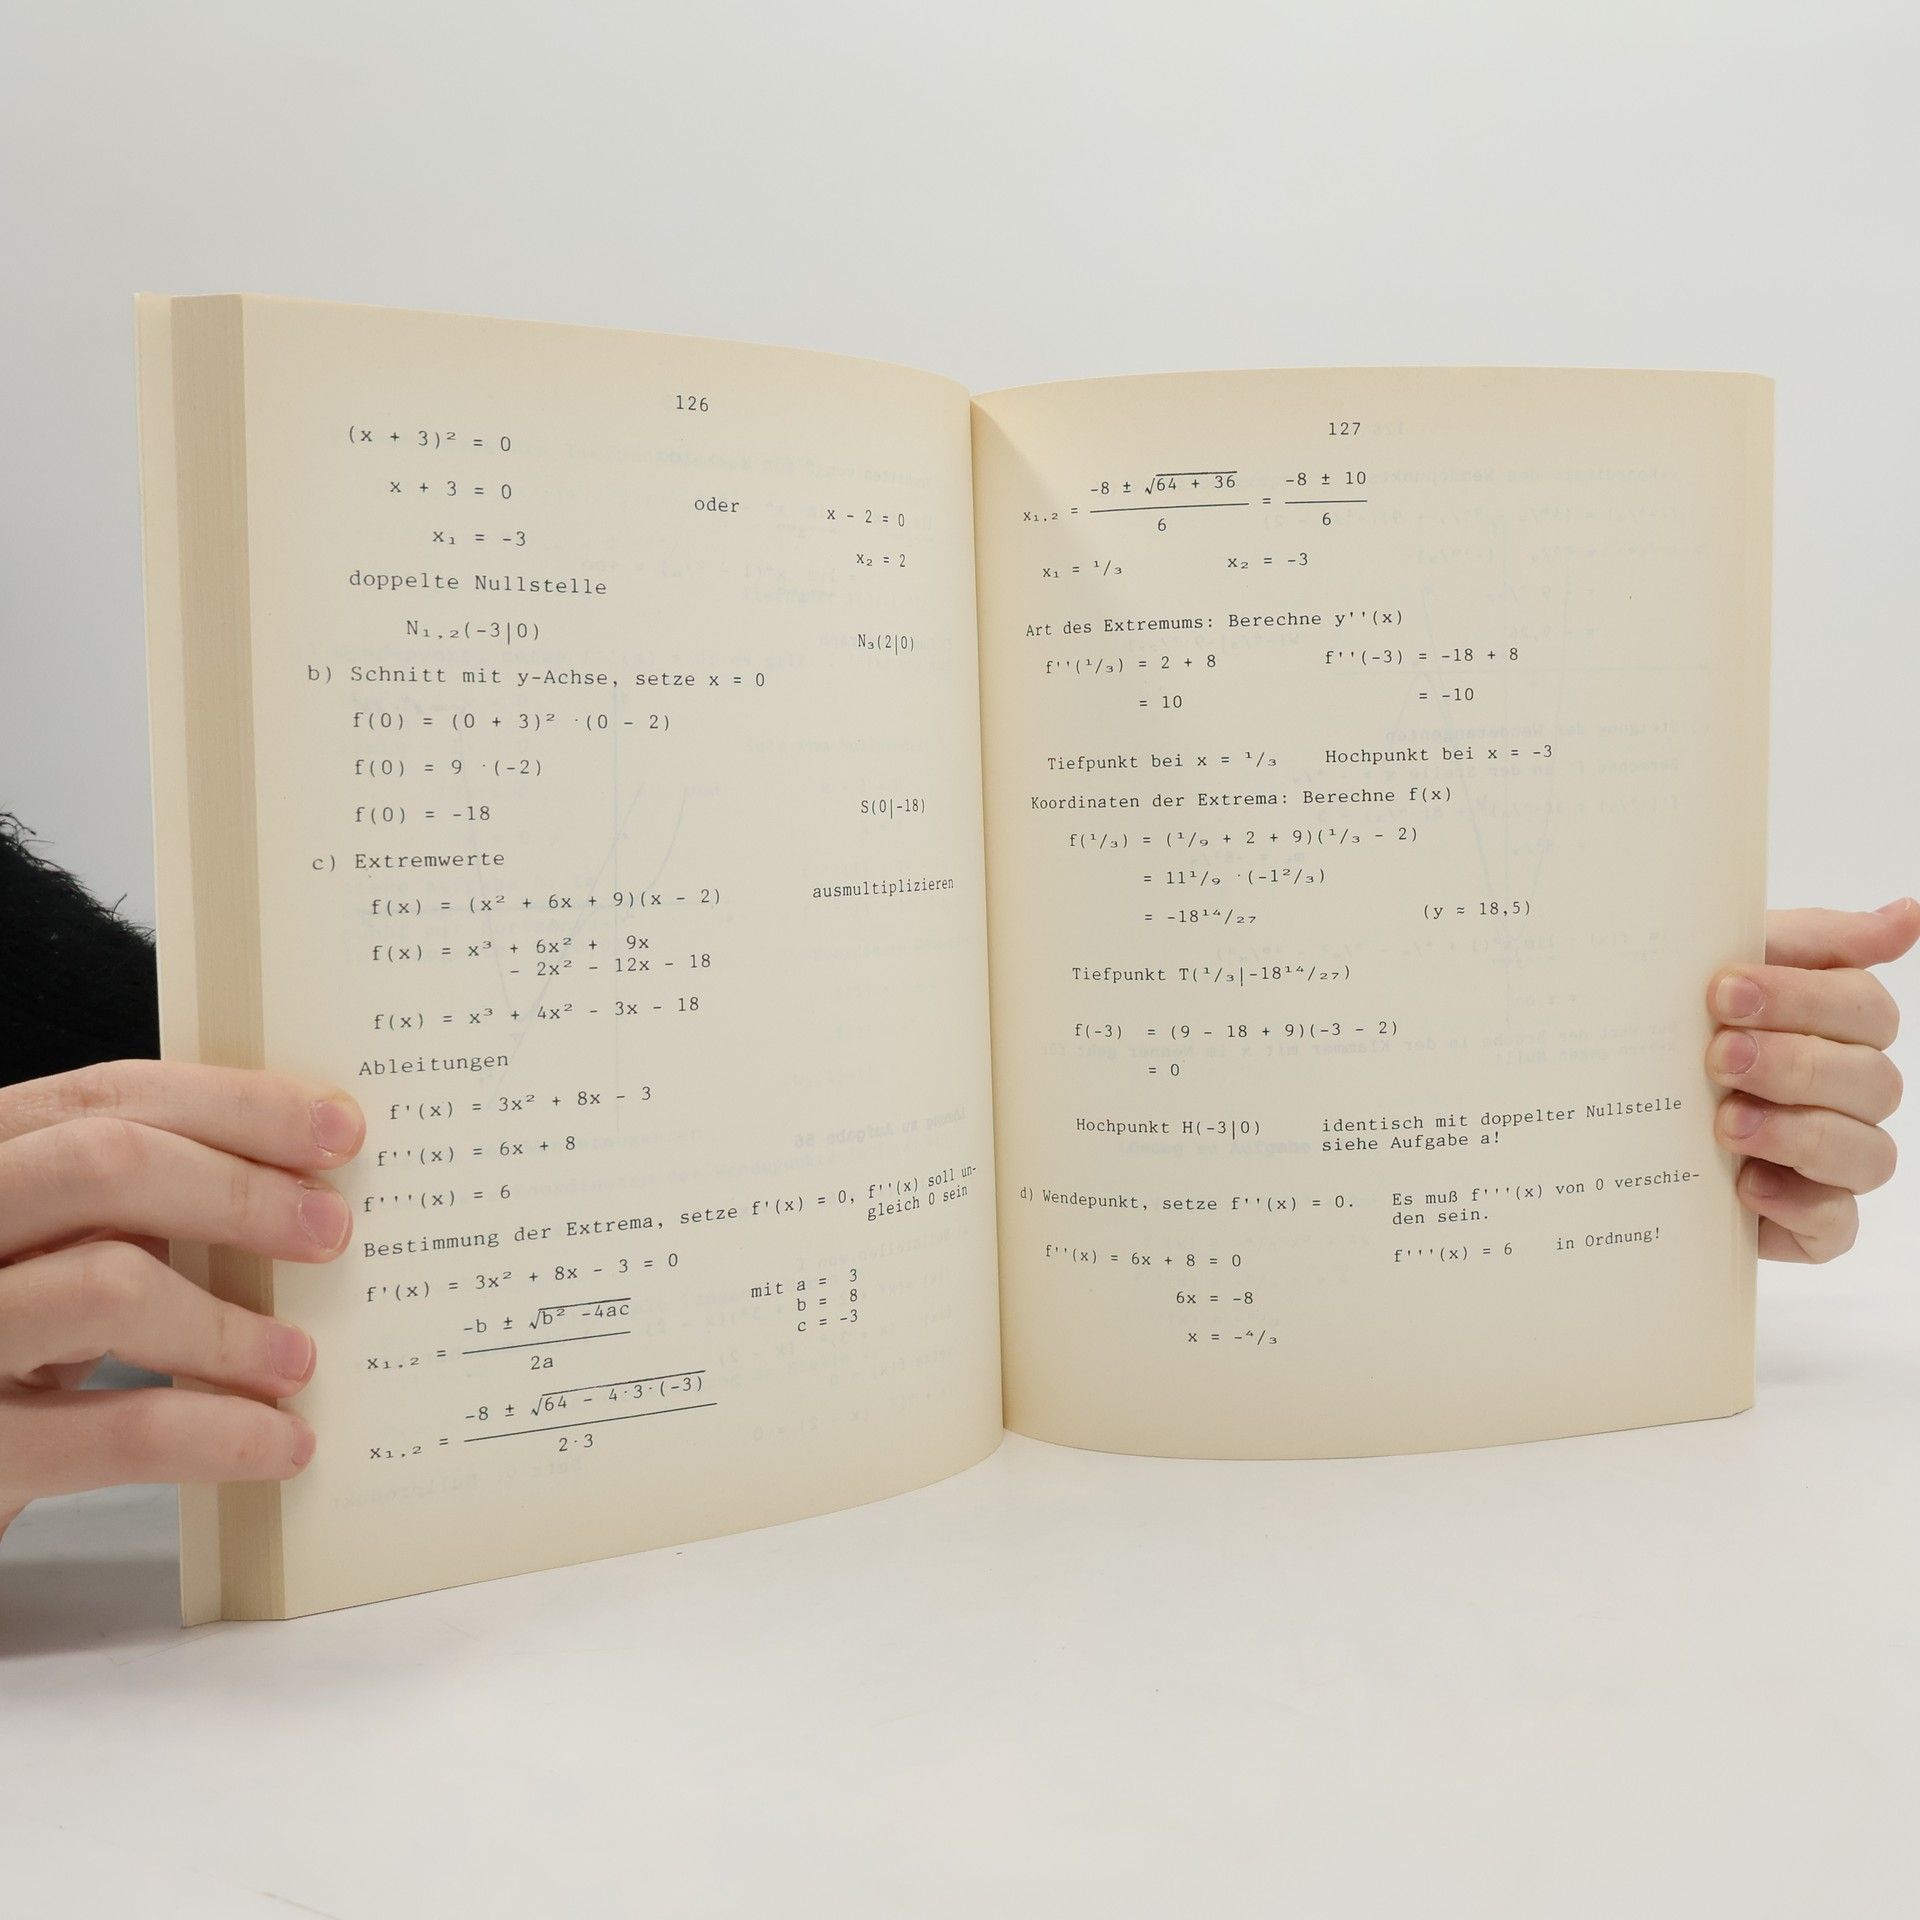 126
(x + 3)² = 0
x + 3 = 0 oder x - 2 = 0
x₁ = -3 x₂ = 2
doppelte Nullstelle
N₁,₂(-3|0) N₃(2|0)
b) Schnitt mit y-Achse, setze x = 0
f(0) = (0 + 3)² ·(0 - 2)
f(0) = 9 ·(-2)
f(0) = -18 S(0|-18)
c) Extremwerte
f(x) = (x² + 6x + 9)(x - 2) ausmultiplizieren
f(x) = x³ + 6x² + 9x
- 2x² - 12x - 18
f(x) = x³ + 4x² - 3x - 18
Ableitungen
f'(x) = 3x² + 8x - 3
f''(x) = 6x + 8
f'''(x) = 6
Bestimmung der Extrema, setze f'(x) = 0, f''(x) soll un-
gleich 0 sein
f'(x) = 3x² + 8x - 3 = 0
mit a = 3
b = 8
c = -3
x₁,₂ = (-b ± √(b² -4ac)) / 2a
x₁,₂ = (-8 ± √(64 - 4·3·(-3))) / 2·3
127
x₁,₂ = (-8 ± √(64 + 36)) / 6 = (-8 ± 10) / 6
x₁ = ¹/₃ x₂ = -3
Art des Extremums: Berechne y''(x)
f''(¹/₃) = 2 + 8 f''(-3) = -18 + 8
= 10 = -10
Tiefpunkt bei x = ¹/₃ Hochpunkt bei x = -3
Koordinaten der Extrema: Berechne f(x)
f(¹/₃) = (¹/₉ + 2 + 9)(¹/₃ - 2)
= 11¹/₉ ·(-1²/₃)
= -18¹⁴/₂₇ (y ≈ 18,5)
Tiefpunkt T(¹/₃|-18¹⁴/₂₇)
f(-3) = (9 - 18 + 9)(-3 - 2)
= 0
Hochpunkt H(-3|0) identisch mit doppelter Nullstelle
siehe Aufgabe a!
d) Wendepunkt, setze f''(x) = 0. Es muß f'''(x) von 0 verschie-
den sein.
f''(x) = 6x + 8 = 0 f'''(x) = 6 in Ordnung!
6x = -8
x = -⁴/₃